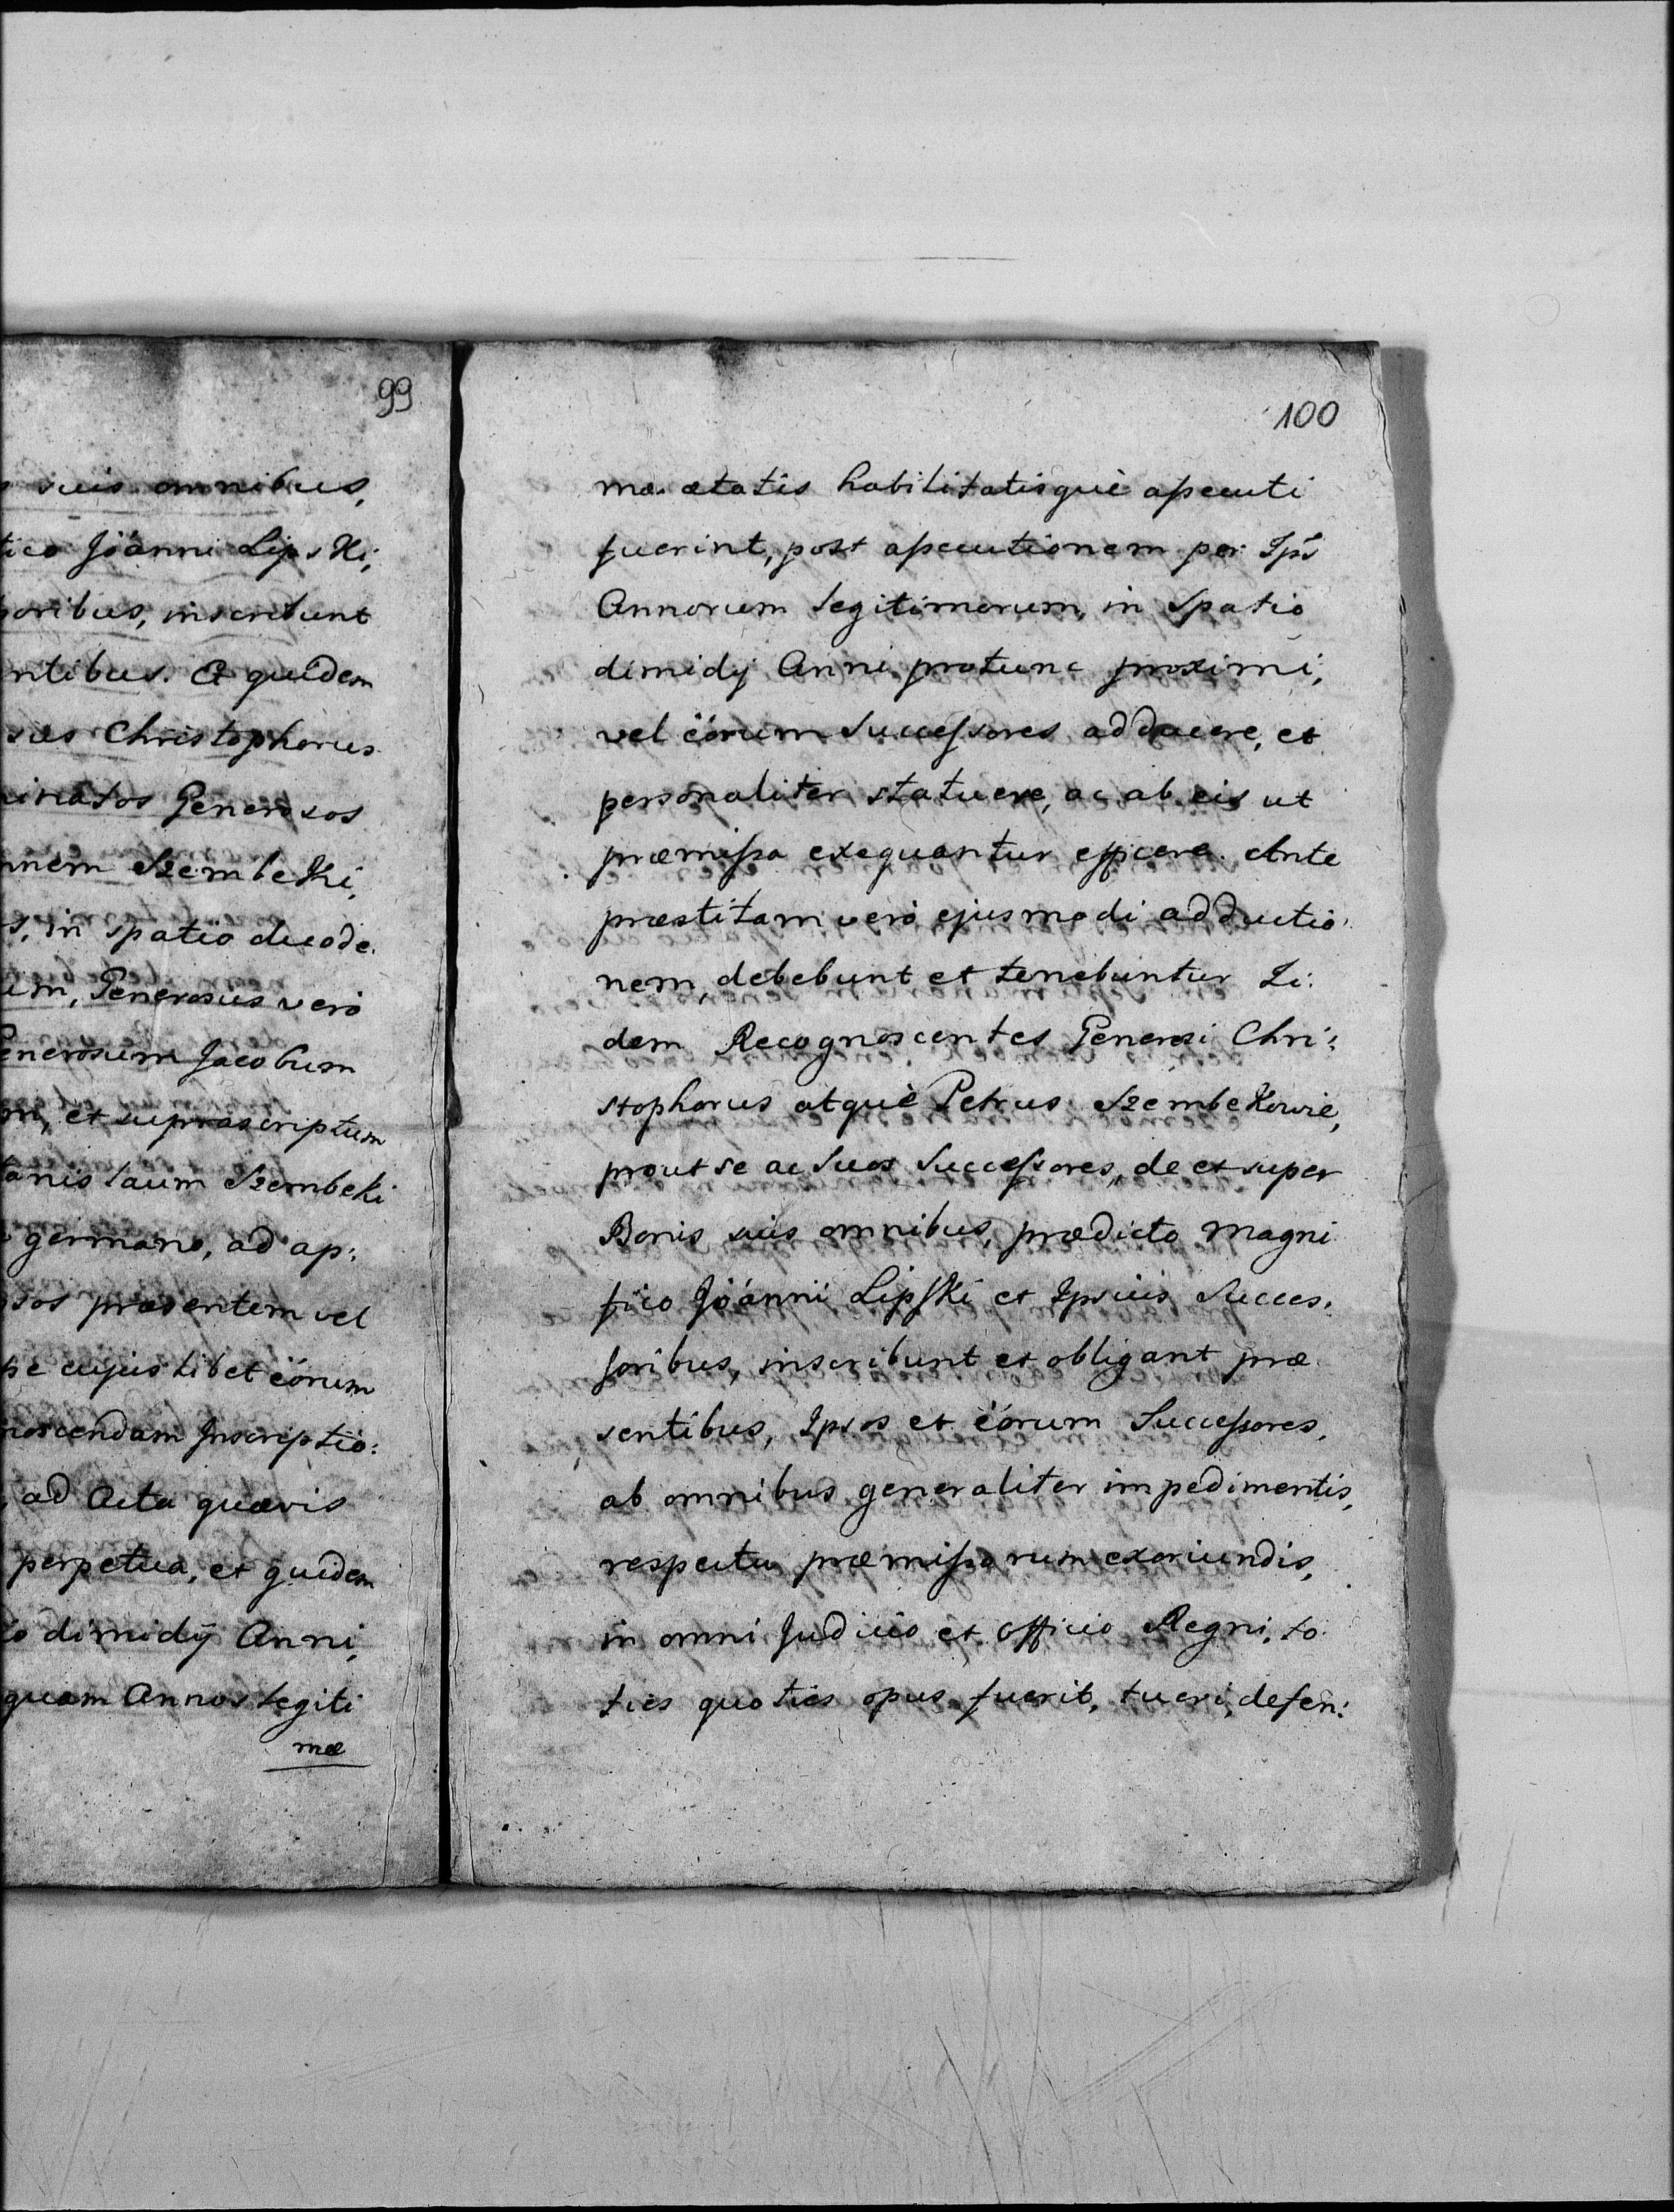 99
suis omnibus,
Jóanni Lipski,
inscribunt
Et quidem
Christophorus
Generosos
Szembeki,
in spatio duode.
Generosus verò
Jacobum
et suprascriptum
Szembeki
germano, ad ap:
præsentem vel
cujus libet eórum
Inscriptio:
ad Acta quævis
perpetua, et quidem
dimidÿ Anni,
quam Annos legiti
mæ
100
mæ. ætatis habilitatisquè aſsecuti
fuerint, post aſsecutionem per Ip̃s
Annorum legitimorum, in Spatio
dimidÿ Anni protunc proximi,
vel eórum Succeſsores adducere, et
personaliter statuere, ac ab eis ut
præmiſsa exequantur efficere. Ante
præstitam verò ejusmodi adductio
nem, debebunt et tenebuntur Ii:
dem Recognoscentes Generosi Chri:
stophorus atquè Petrus Szembekowie,
prout se ac Suos Succeſsores, de et super
Bonis suis omnibus, prædicto Magni
fico Jóanni Lipſki et Ipsius Succes.
soribus, inscribunt et obligant præ
sentibus, Ipsos et eórum Succeſsores,
ab omnibus generaliter impedimentis,
respectu præmiſsorum exoriundis,
in omni Judicio et Officio Regni, to
ties quoties opus fuerit, tueri, defen: